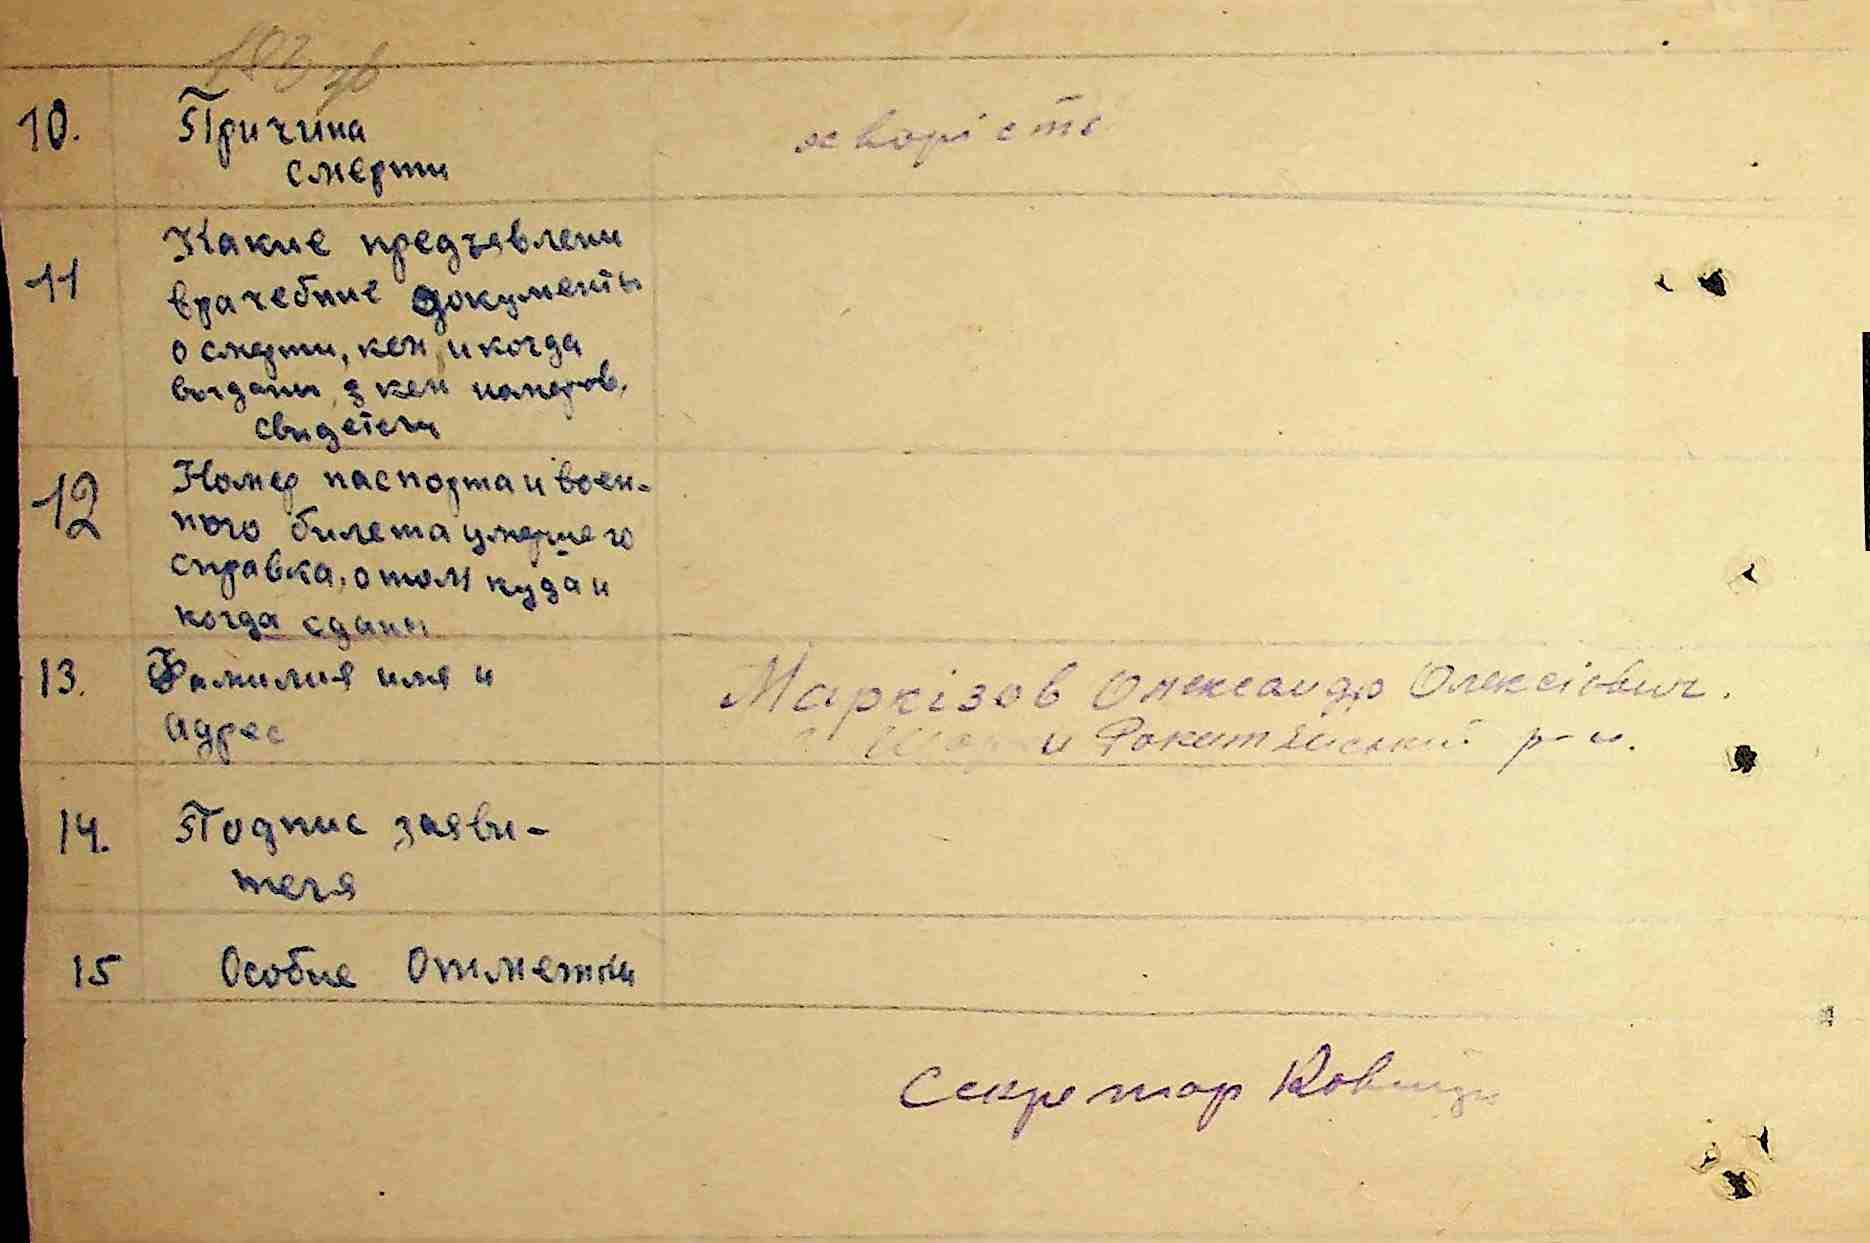 10. Причина
смерти
хворість
11 Какие предъявлени
врачебние документы
о смерти, кем и когда
выданы, з кем намеров.
свидетели
12 Номер паспорта и воен-
ного билета умершего
справка, о том куда и
когда сданы
13. Фамилия имя и
адрес
Маркізов Олександр Олексіович.
и Рокитянський р-н.
14. Подпис заяви-
теля
15 Особие Отметки
Секретар